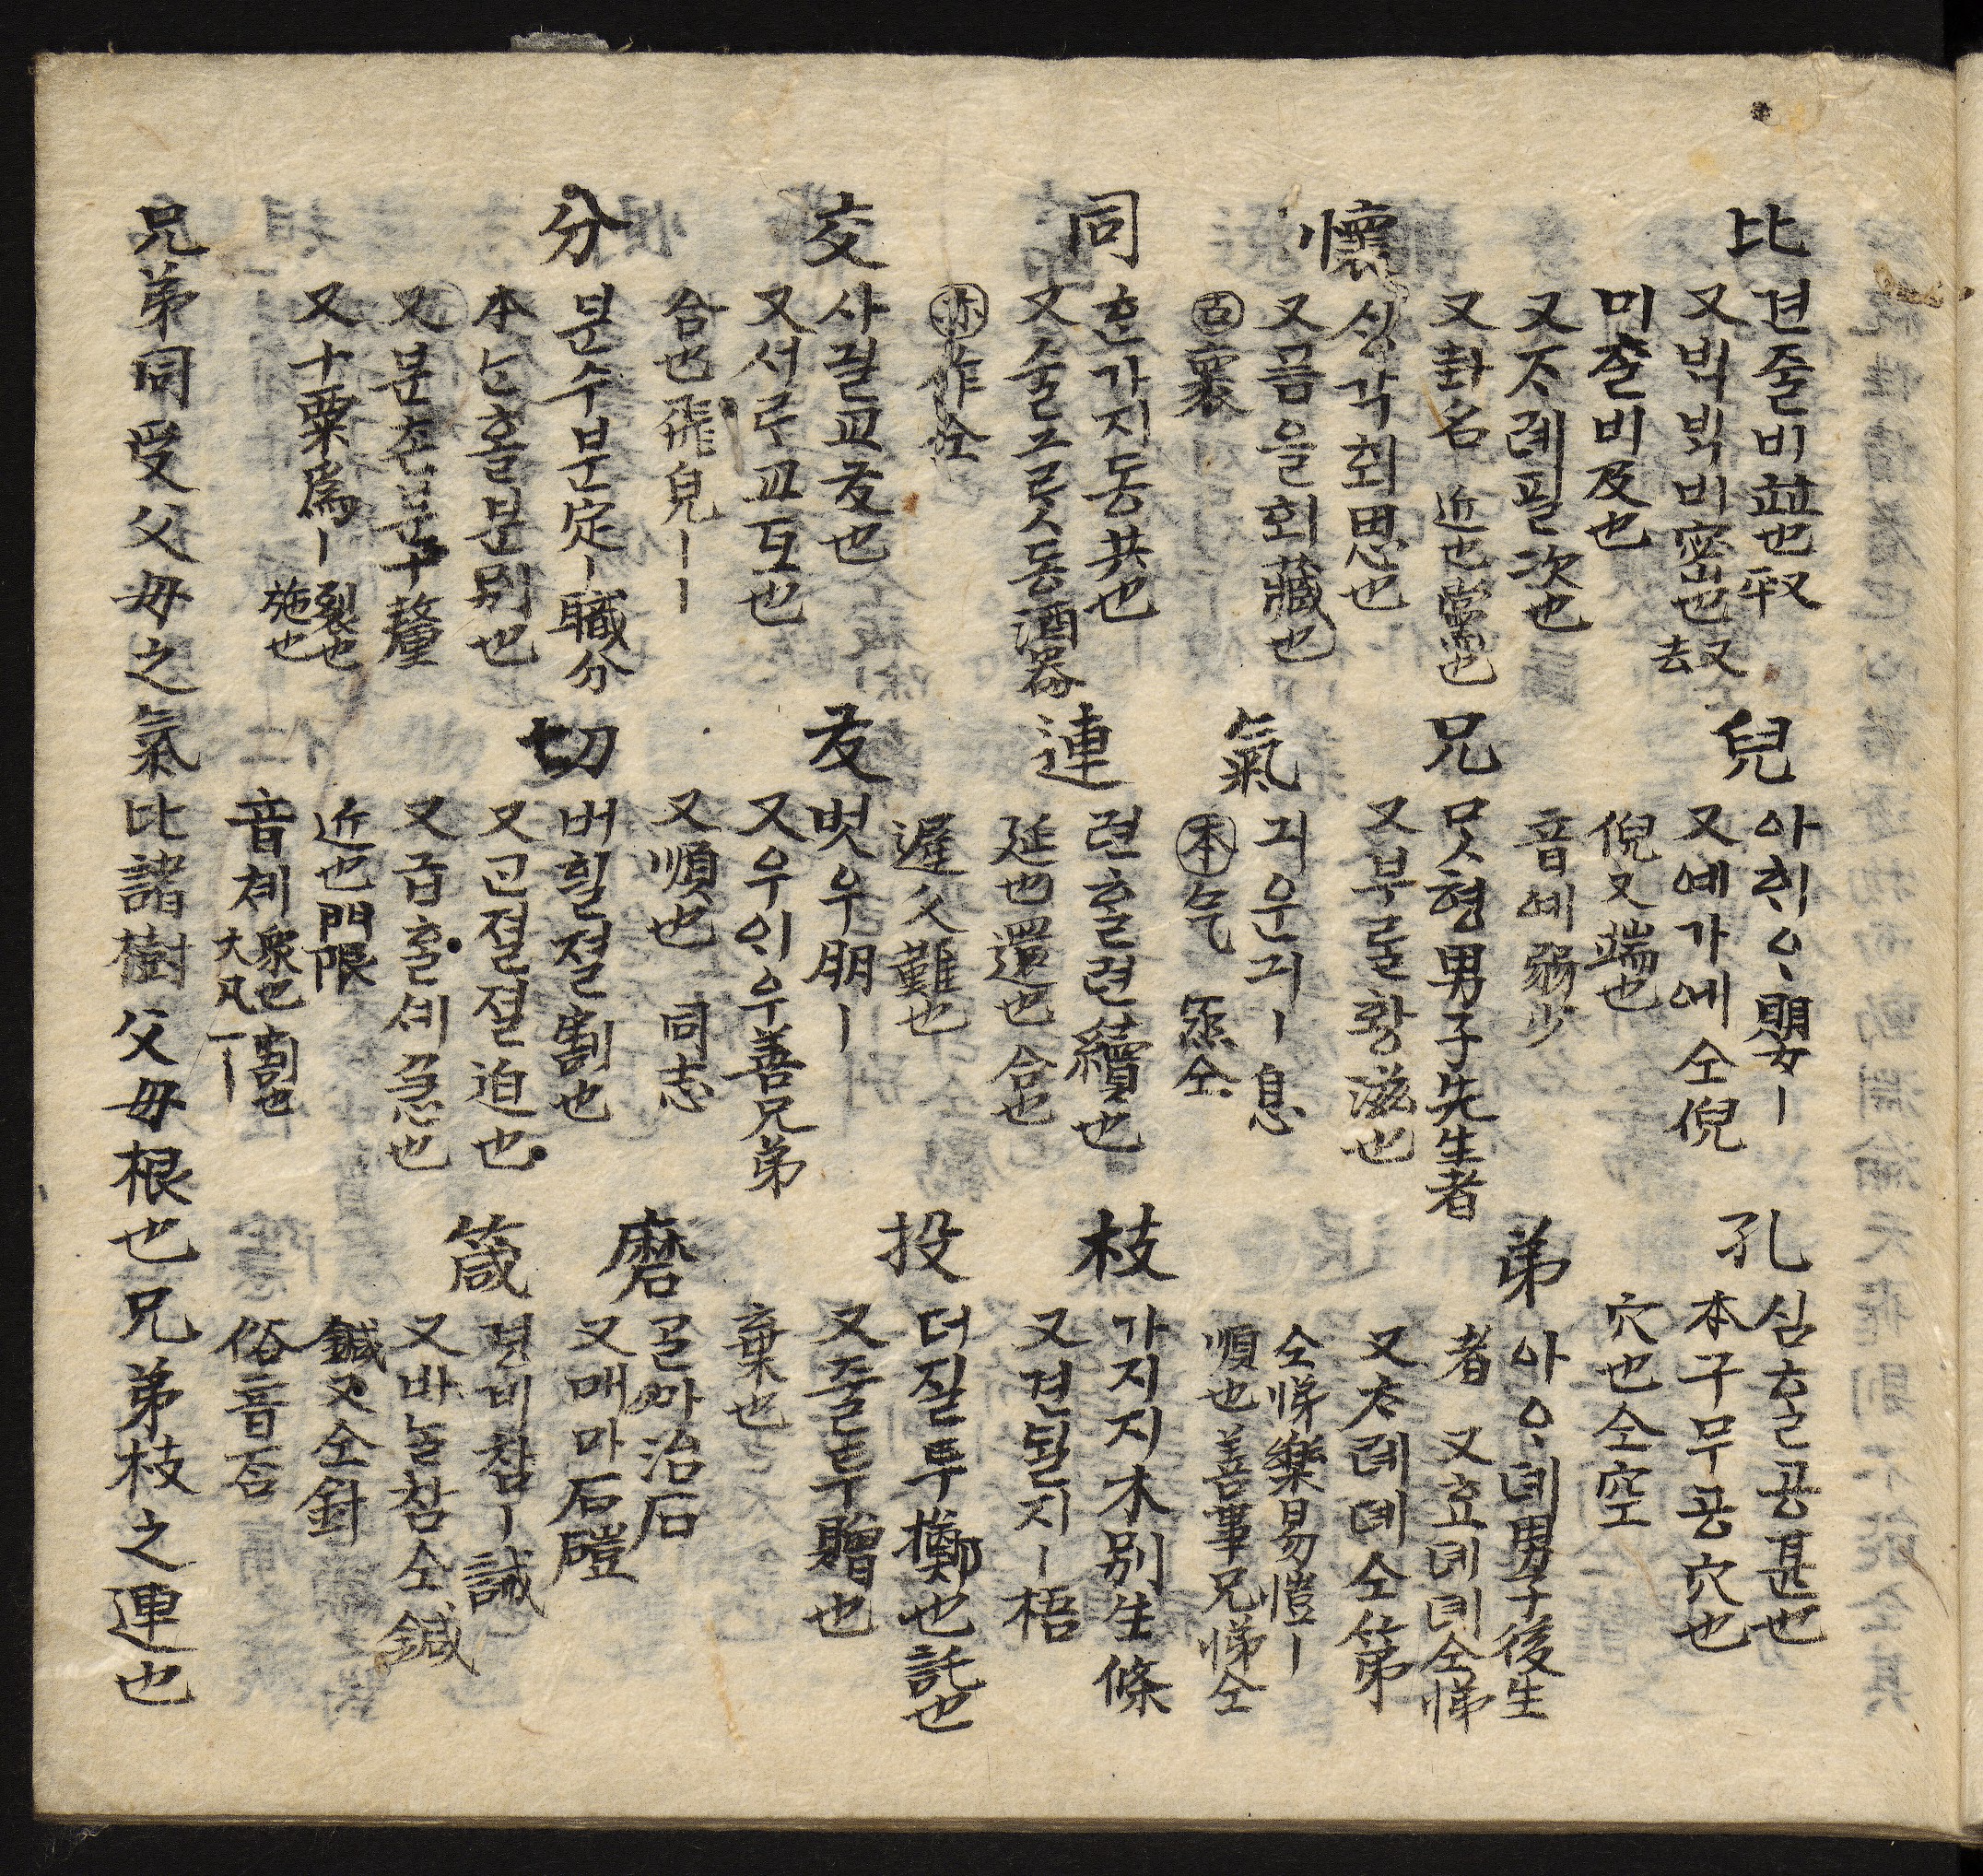 比
견줄비並也
又빅빅비密也 又去
미줄비及也
又ᄎᆞ례필次也
又卦名 近也當也
兒
아ᄒᆡᄋᆞ嬰〡
又예가예仝倪
倪又端也
音예弱少
孔
심ᄒᆞᆯ공甚也
本구무공穴也
穴也仝空
懷
ᄉᆡᆼ각회思也
又픔을회藏也
古褱
兄
ᄆᆞᆺ형男子先生者
又부를황滋也
弟
아ᄋᆞ뎨男子後生
者 又효뎨뎨仝悌
又ᄎᆞ례뎨仝第
仝悌樂易愷〡
順也善事兄悌仝
同
ᄒᆞᆫ가지동共也
又술그ᄅᆞᆺ동酒器
亦作仝
氣
긔운긔〡息
本气 炁仝
連
련ᄒᆞᆯ련續也
延也還也合也
遲久難也
枝
가지지木別生條
又견딜지〡梧
交
사괼교友也
又서ᄅᆞ교互也
合也飛皃〡〡
友
벗우朋〡
又우ᄋᆡ우善兄弟
又順也 同志
投
더질투擲也託也
又줄투贈也
棄也
分
분수분定〡職分
本ᄂᆞᆫ홀분別也
又분촌분十釐
又十粟爲〡 裂也施也
切
버힐졀割也
又근졀졀迫也
又급ᄒᆞᆯ졔急也
近也門限
音쳬衆也 大凡一〡 割也
磨
ᄀᆞᆯ마治石
又매마石磑
箴
경비잠〡誡
又바ᄂᆞᆯ잠仝鍼
鍼又仝針
俗音否
兄弟同受父母之氣比諸樹父母根也兄弟枝之連也